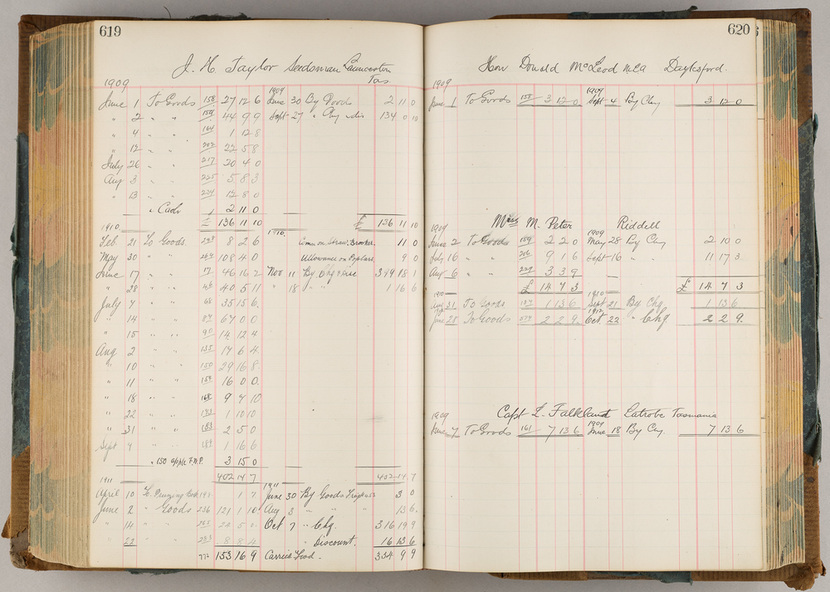 619
J. H. Taylor Seedsman Launceston
Tas
1909 1909
June 1 To Goods 158 27 12 6 June 30 By Goods 2 11 0
" 2 " " 159 44 9 9 Sept 27 " Chq " dis 134 0 10
" 4 " " 164 1 12 8
" 12 " " 202 22 5 8
July 26 " " 217 20 4 0
Aug 3 " " 225 5 8 3
" 13 " " 234 12 8 0
" Cash 2 11 0
£ 136 11 10 £ 136 11 10
1910 1910
Feb 21 To Goods 8 2 6 11 0
May 30 " " 108 4 0 Allowance on 9 0
June 17 " " 46 16 2 Nov 11 By Chq 399 18 1
" 28 " " 40 5 11 " 18 " " 1 16 6
July 7 " " 35 15 6
" 14 " " 67 0 0
" 15 " " 14 12 4
Aug 2 " " 17 6 4
" 10 " " 29 16 8
" 11 " " 16 0 0
" 18 " " 9 4 10
" 22 " " 1 10 10
" 31 " " 2 5 0
Sept 9 " " 1 16 6
" 150 apple 3 15 0
402 14 7 402 14 7
1911 1911
April 10 To 1 7 June 30 By Goods 3 0
June 2 " Goods 236 121 1 10 Aug 3 " " 13 6
" 14 " " 20 5 Oct 7 " Chq 316 19 9
" 22 " " 8 8 4 " Discount 16 13 6
153 16 9 Carried Forwd. 334 9 9
620
Hon Donald McLeod MLA Daylesford.
1909 1909
June 1 To Goods 158 3 12 0 Sept 4 By Chq 3 12 0
Miss M. Peter Riddell
1909 1909
June 2 To Goods 159 2 2 0 May 28 By Chq 2 10 0
July 16 " " 206 9 1 6 Sept 16 " " 11 17 3
Aug 6 " " 3 3 9
£ 14 7 3 £ 14 7 3
Aug 31 To Goods 1 13 6 Sept 21 By Chq 1 13 6
June 25 To Goods 2 2 9 Oct 22 " Chq 2 2 9
Capt L. Falkland Latrobe Tasmania
1909 1909
June 7 To Goods 161 7 13 6 June 18 By Chq 7 13 6